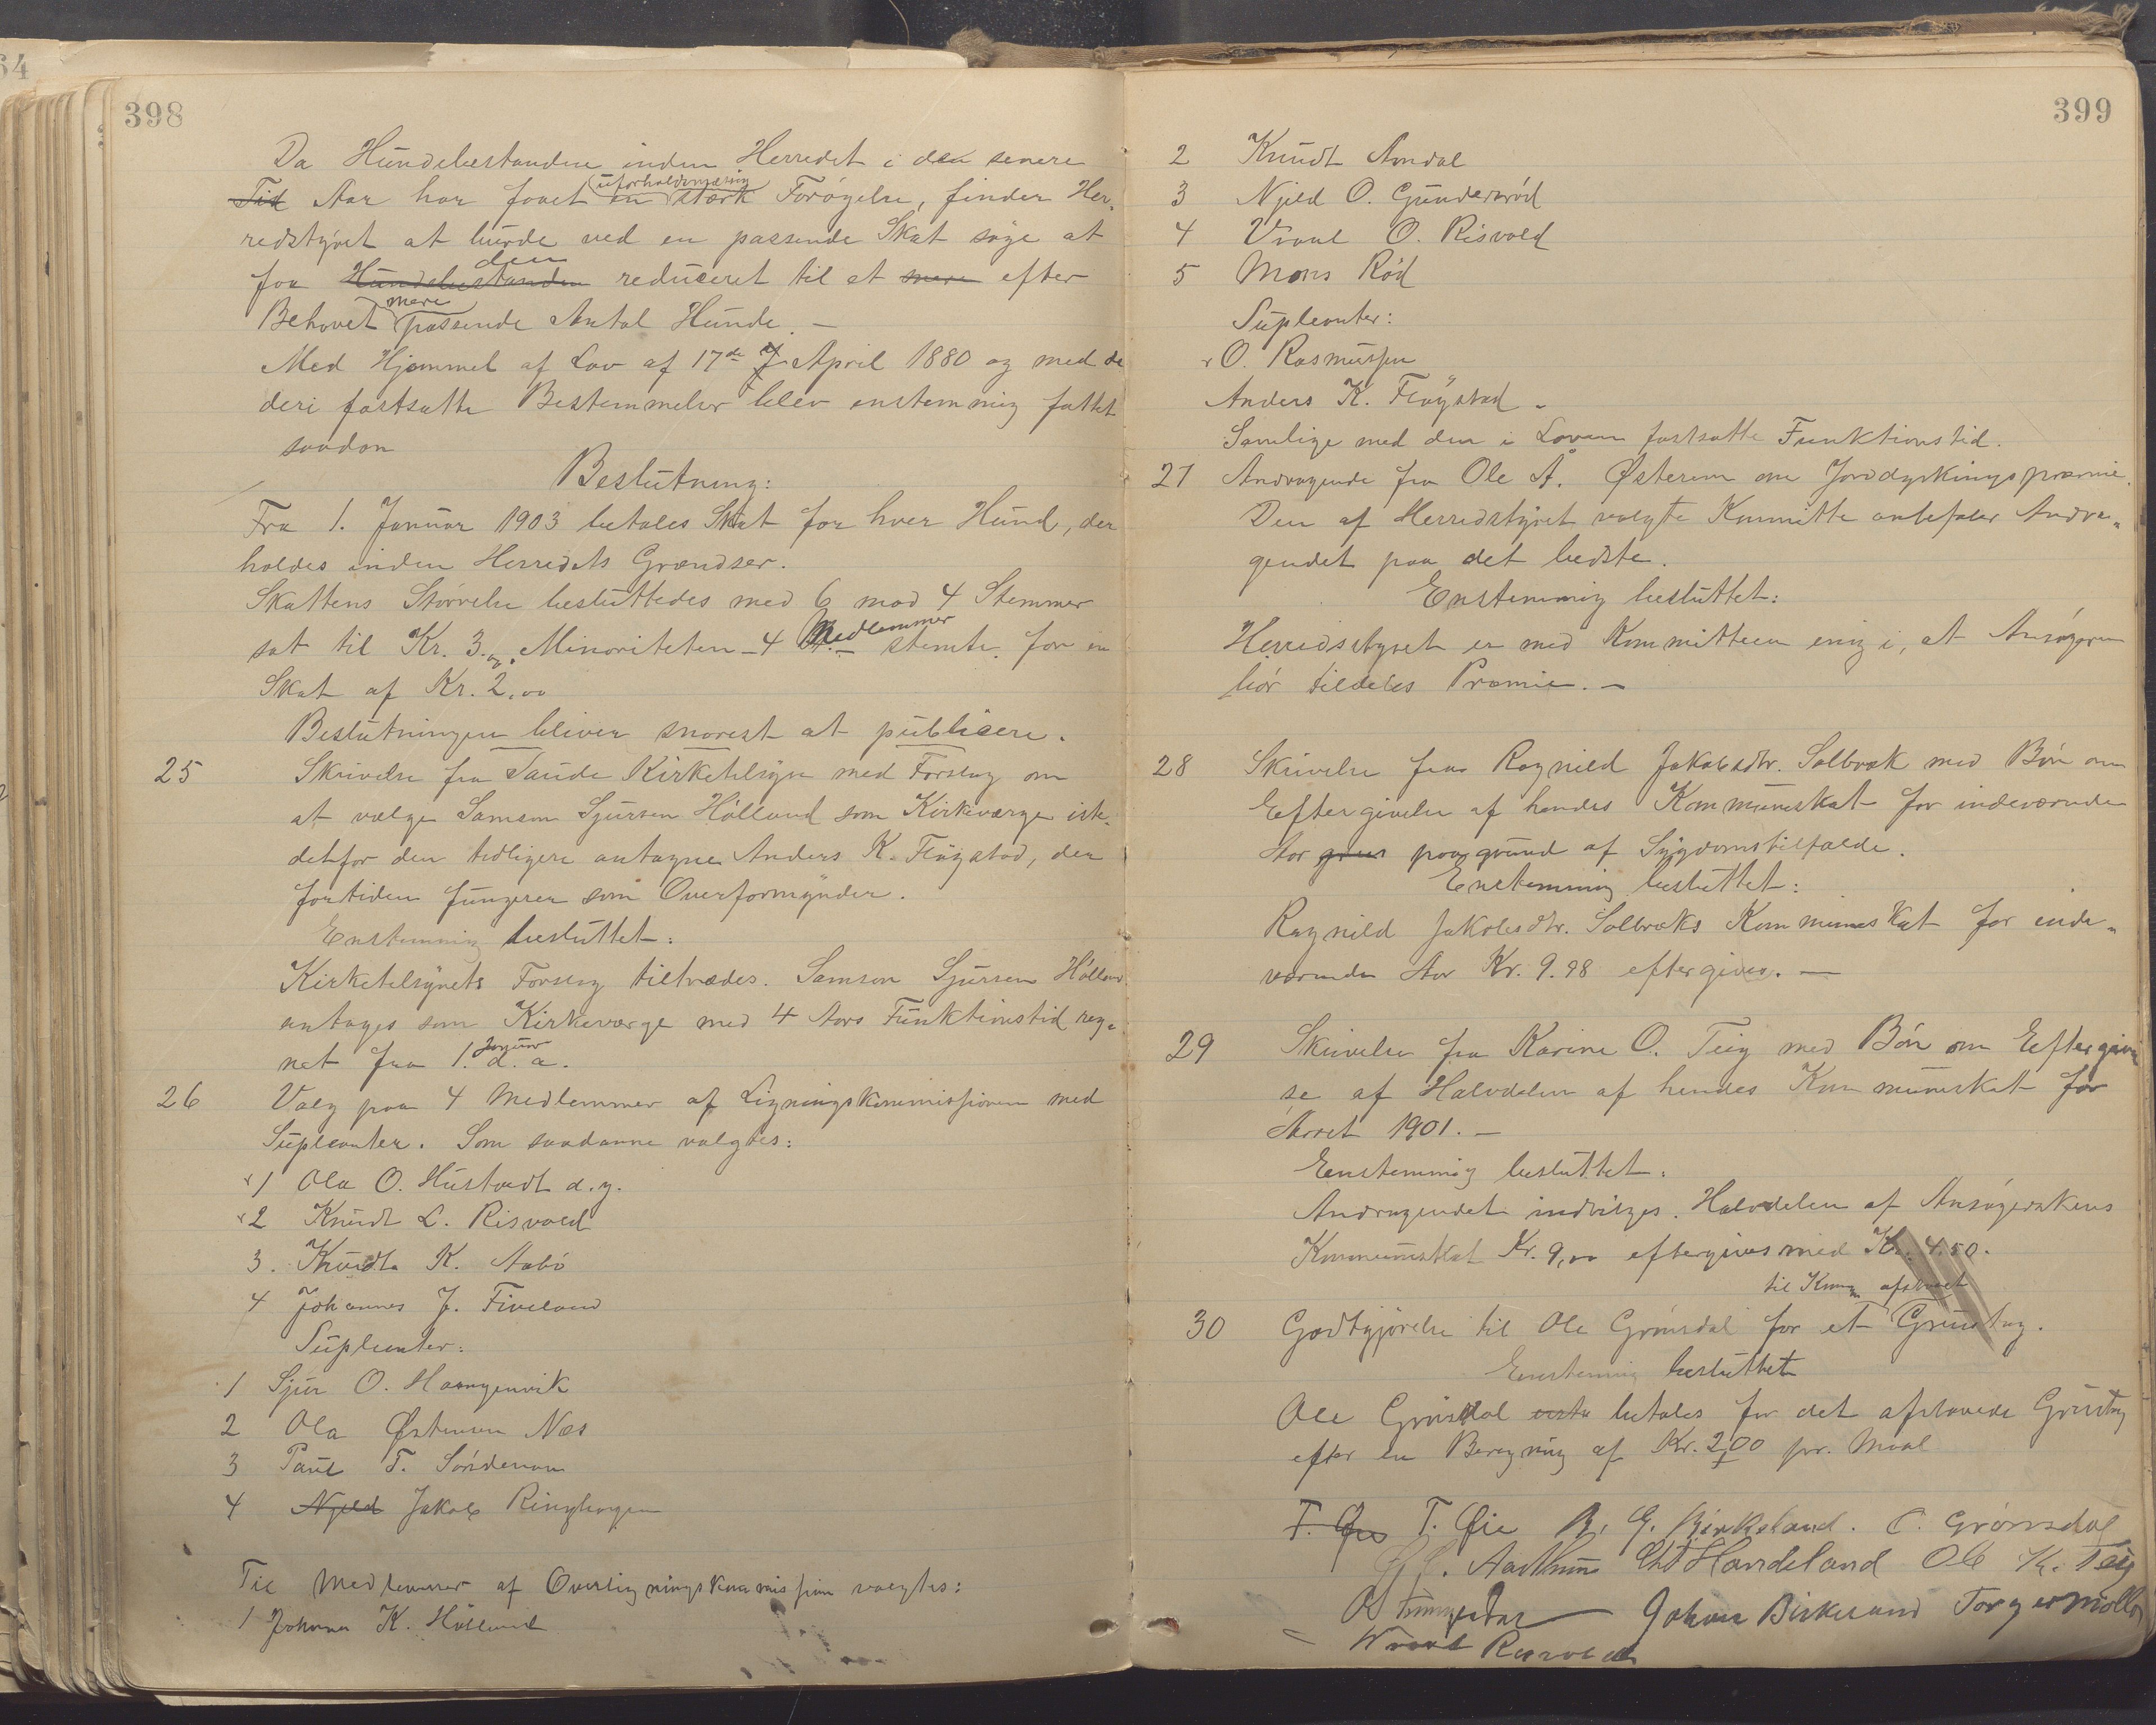 398
Da Hundebestanden inden Herredet i den senere
Tid Aar har faaet en uforholdsmæssig stærk Forøgelse, finder Her-
redstyret at burde ved en passende Skat søge at
faa Hundebestanden den reduceret til et mere efter
Behovet mere passende Antal Hunde. —
Med Hjemmel af Lov af 17de J April 1880 og med de
deri fastsatte Bestemmelser blev enstemmig fattet
saadan
Beslutning:
Fra 1. Januar 1903 betales Skat for hver Hund, der
holdes inden Herredets Grændser.
Skattens Størrelse besluttedes med 6 mod 4 Stemmer
sat til Kr. 3.00. Minoriteten – 4 Medlemmer – stemte for en
Skat af Kr. 2,00
Beslutningen bliver snarest at publicere.
25 Skrivelse fra Saude Kirketilsyn med Forslag om
at vælge Samson Sjursen Hólland som Kirkeværge iste-
detfor den tidligere antagne Anders K. Fløgstad, der
fortiden fungerer som Overformynder.
Enstemmig besluttet:
Kirketilsynets Forslag tiltrædes. Samson Sjursen Hólland
antages som Kirkeværge med 4 Aars Funktionstid reg-
net fra 1. Januar d. a.
26 Valg paa 4 Medlemmer af Ligningskommissionen med
Supleanter. Som saadanne valgtes:
1 Ola O. Hustvedt d.y.
2 Knudt L. Risvold
3. Knudt K. Aabó
4 Johannes J. Fiveland
Supleanter:
1 Sjur O. Haangenvik
2 Ola Østensen Næs
3 Paul T. Søndenaa
4 Njeld Jakob Ringhagen
Til Medlemmer af Overligningskommission valgtes:
1 Johannes K. Hólland
399
2 Knudt Amdal
3 Njeld O. Gundersrød
4 Vraal O. Risvold
5 Mons Rød
Supleanter:
O. Rasmussen
Anders K. Fløgstad
Samlige med den i Loven fastsatte Funktionstid.
27 Andragende fra Ole A. Østerem om Jorddyrkningspræmie.
Den af Herredstyret valgte Kommitte anbefaler Andra-
gendet paa det bedste.
Enstemmig besluttet:
Herredstyret er med Kommitteen enig i, at Ansøgeren
bør tildeles Præmie. —
28 Skrivelse fra Ragnild Jakobsdtr. Solbræk med Bøn om
Eftergivelse af hendes Kommuneskat for indeværende
Aar paa grund af Sygdomstilfælde.
Enstemmig besluttet:
Ragnild Jakobsdtr. Solbræks Kommuneskat for inde-
værende Aar Kr. 9.98 eftergives. —
29 Skrivelse fra Karine O. Teig med Bøn om Eftergivel
se af Halvdelen af hendes Kommuneskat for
Aaret 1901. —
Eenstemmig besluttet:
Andragendet indvilges. Halvdelen af Ansøgerskens
Kommuneskat Kr. 9,00 eftergives med Kr. 4.50.
til afstaaet
30 Godtgjørelse til Ole Grønsdal for et Grustag.
Eenstemmig besluttet
Ole Grønsdal betales for det afstaaede Grustag
efter en Beregning af Kr. 2,00 pr. Maal
T. Øie T. Øie B. G. Birkeland. O. Grønsdal
Aarthun Handeland Ole K. Teig
Johan Birkeland Torger Mollo
Vraal Risvold